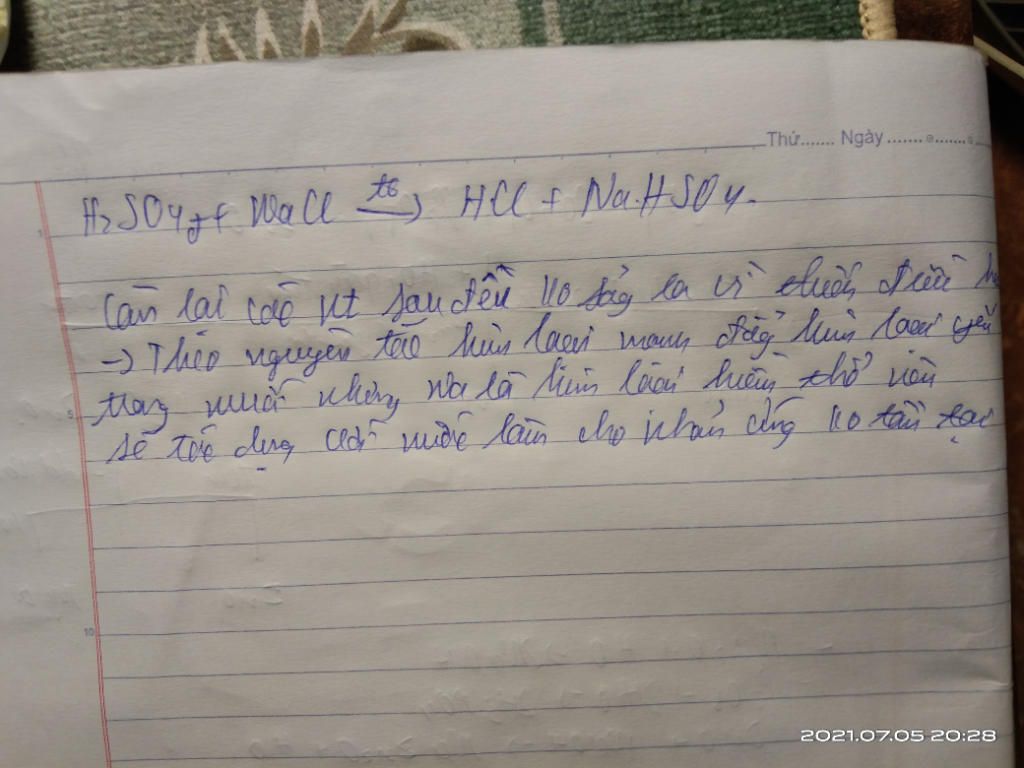 Thứ....... Ngày ....................
H₂SO₄ + NaCl t° → HCl + NaHSO₄.
Còn lại các pt sau đều ko xảy ra vì thiếu điều
→ Theo nguyên tắc kim loại mạnh đẩy kim loại yếu
trong muối nhưng Na là kim loại kiềm thổ nên
5
sẽ tác dụng với nước làm cho phản ứng ko tồn tại
10
2021.07.05 20:28